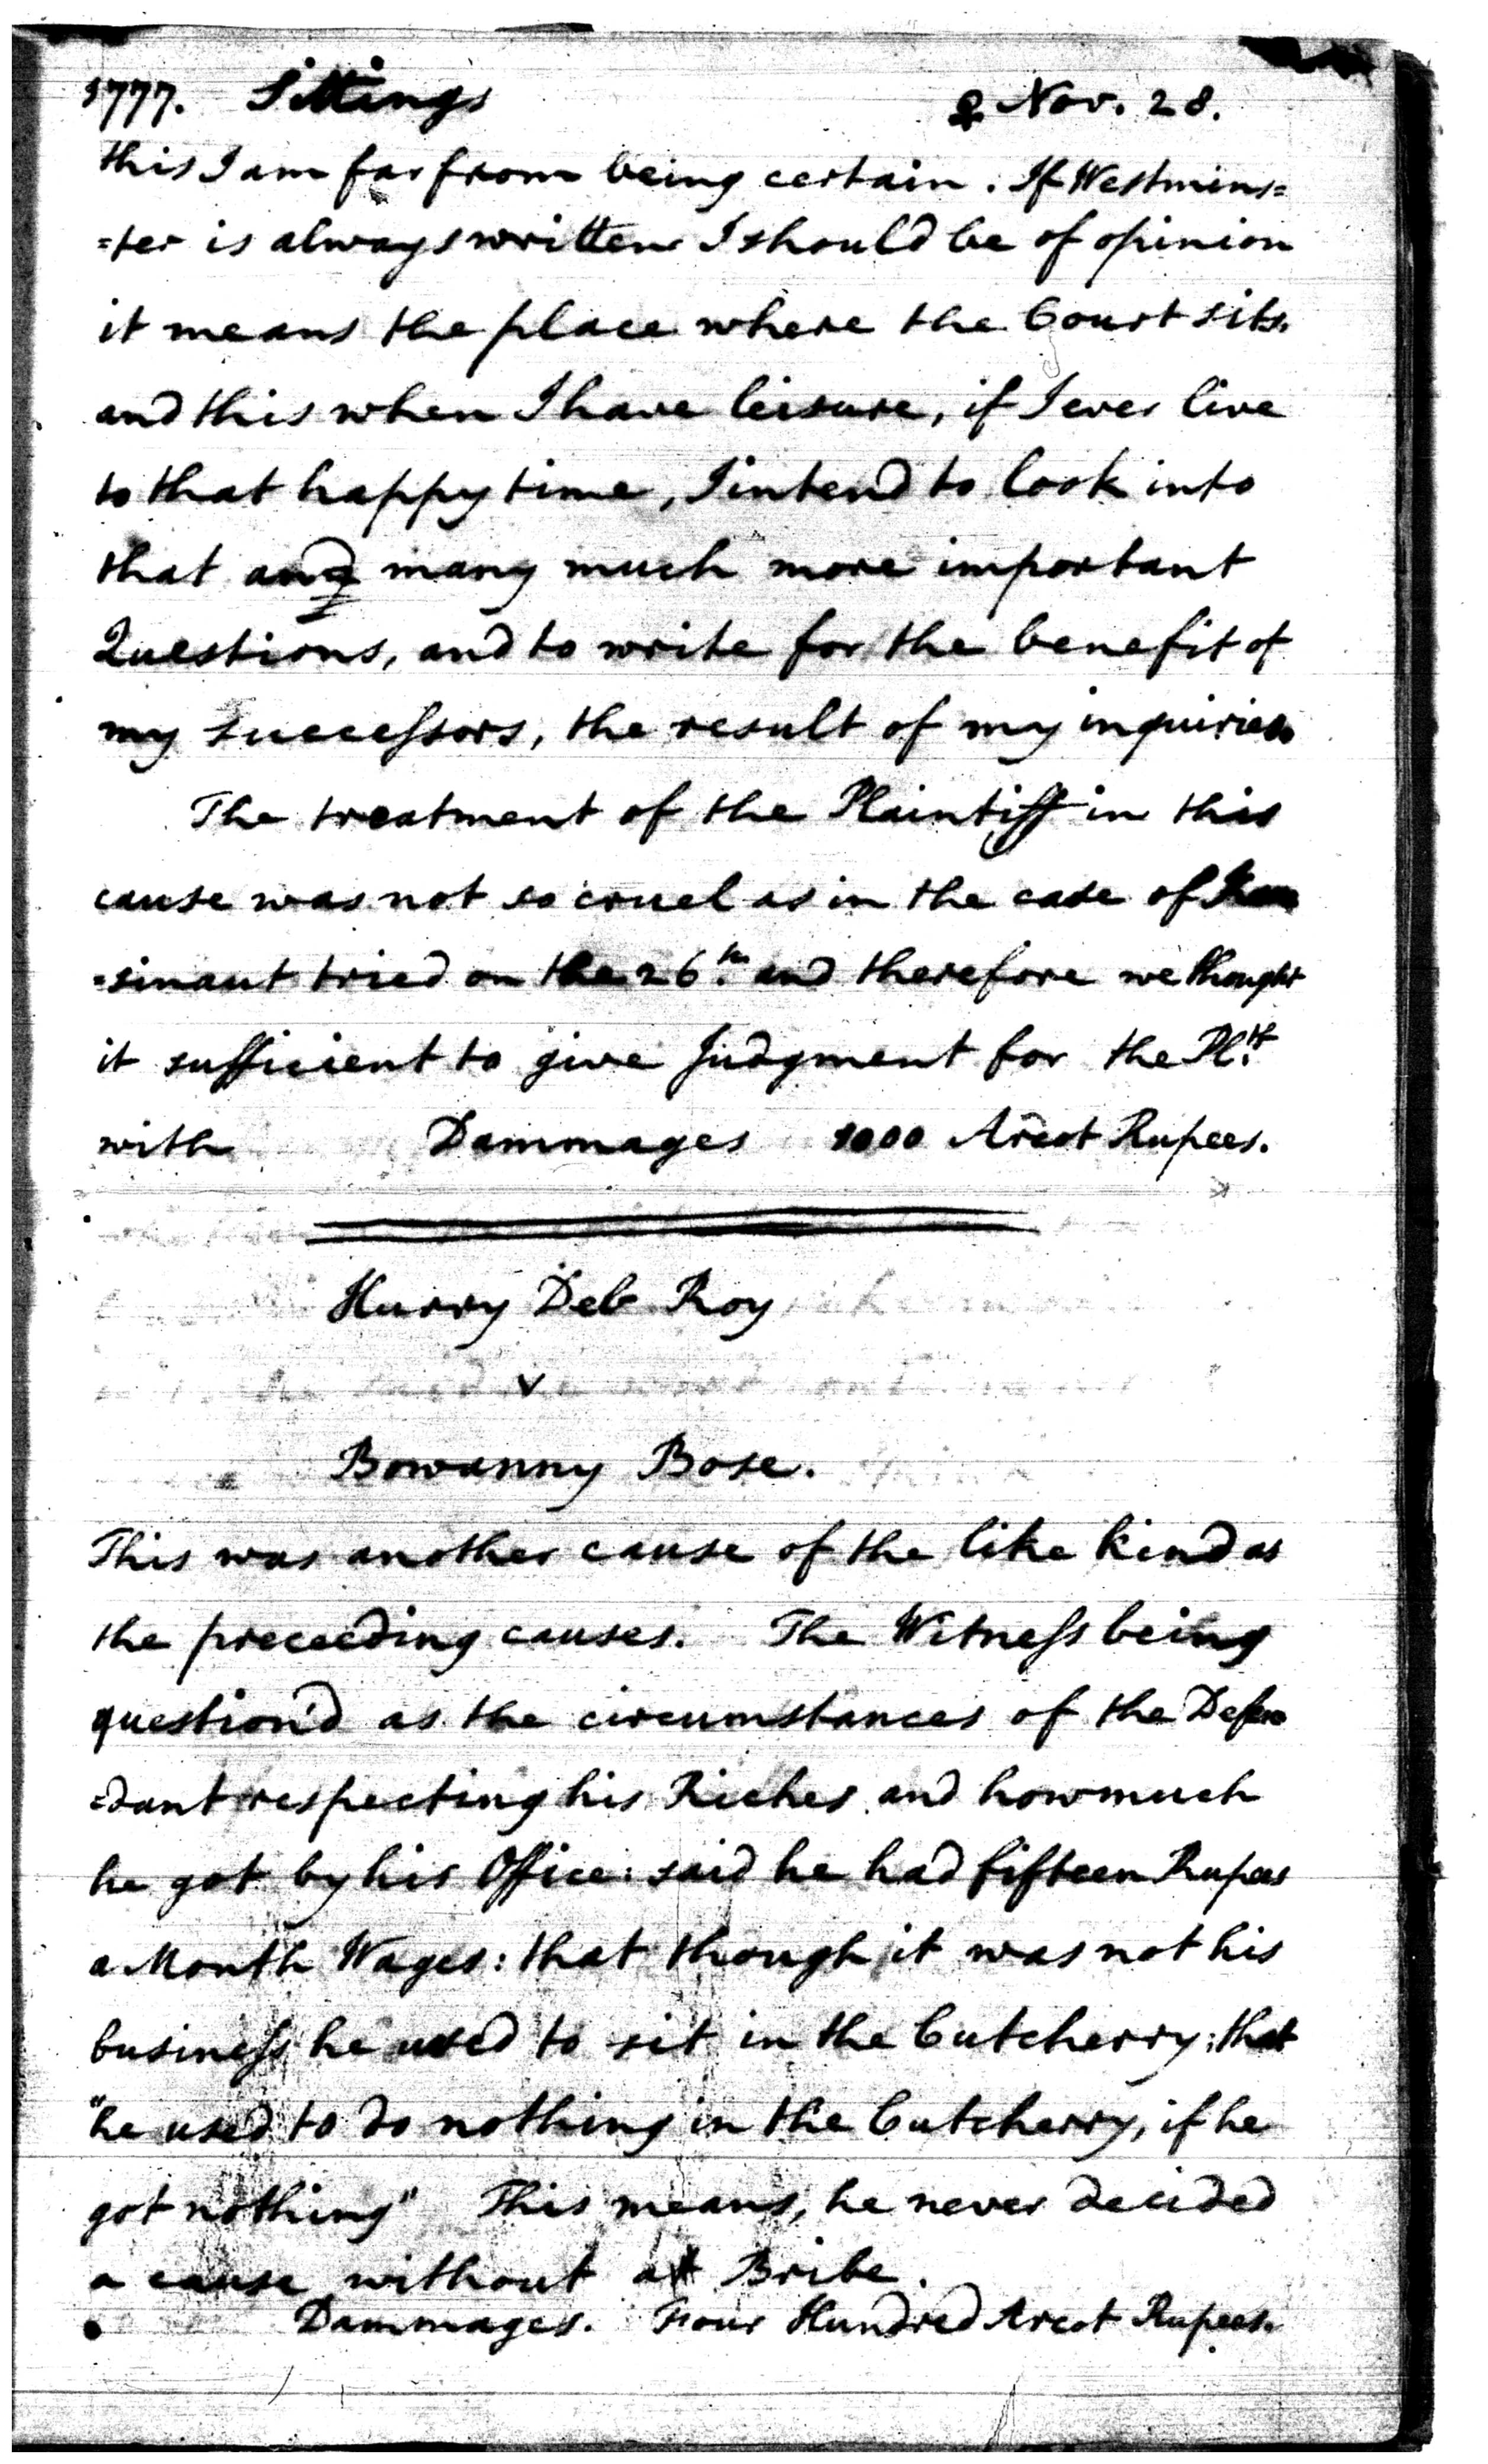 1777. Sittings ♀ Nov. 28.
this I am far from being certain. If Westmins=
=ter is always written I should be of opinion
it means the place where the Court sits.
and this when I have leisure, if I ever live
to that happy time, I intend to look into
that and many much more important
Questions, and to write for the benefit of
my successors, the result of my inquiries.
The treatment of the Plaintiff in this
cause was not so cruel as in the case of
=sinaut tried on the 26.th and therefore we thought
it sufficient to give Judgment for the Pl.ff
with Dammages 1000 Arcot Rupees.
Hurry Deb Roy
v
Bowanny Bose.
This was another cause of the like kind as
the preceeding causes. The Witness being
question'd as the circumstances of the Defen
=dant respecting his Riches and how much
he got by his Office: said he had fifteen Rupees
a Month Wages: that though it was not his
business he used to sit in the Cutcherry: that
"he used to do nothing in the Cutcherry, if he
got nothing" This means, he never decided
a cause without a Bribe.
Dammages. Four Hundred Arcot Rupees.